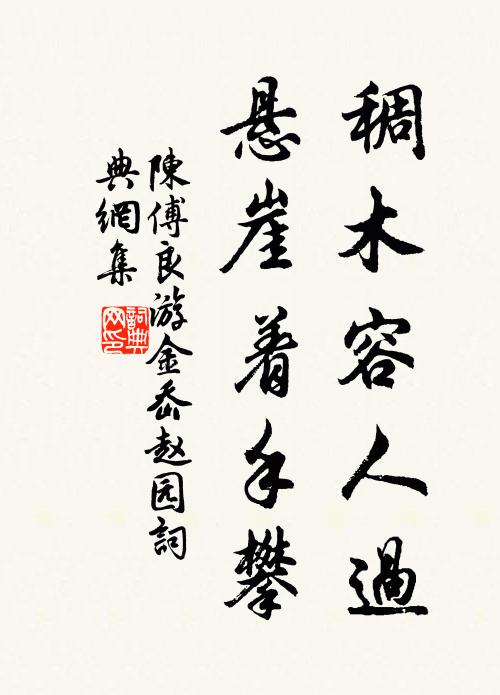 稠木容人過
悬崖着手攀
陳傅良游金岙赵园詞
典網集
詞典
网印